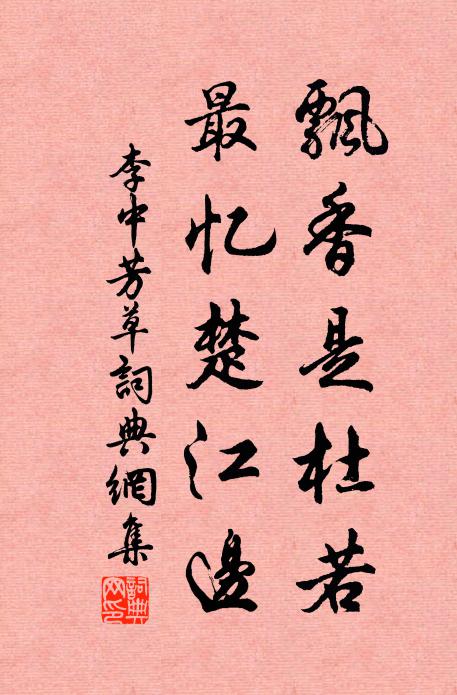 飄香是杜若
最忆楚江邊
李中芳草詞典網集
詞典网印